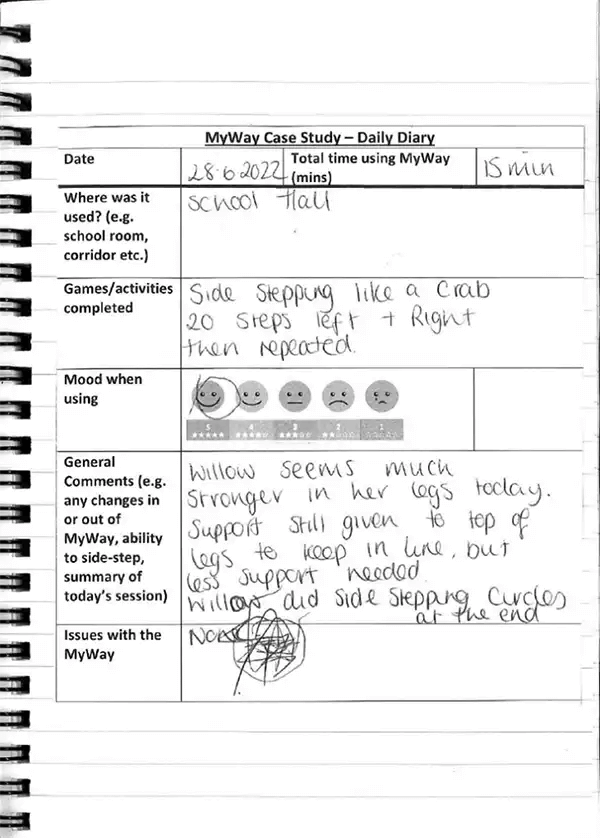 MyWay Case Study – Daily Diary
Date
28.6.2022
Total time using MyWay
(mins)
15 min
Where was it
used? (e.g.
school room,
corridor etc.)
School Hall
Games/activities
completed
Side Stepping like a Crab
20 Steps left + Right
then repeated.
Mood when
using
5 4 3 2 1
General
Comments (e.g.
any changes in
or out of
MyWay, ability
to side-step,
summary of
today's session)
Willow seems much
Stronger in her legs today.
Support still given to top of
legs to keep in line, but
less support needed.
Willow did Side Stepping Circles
at the end
Issues with the
MyWay
None